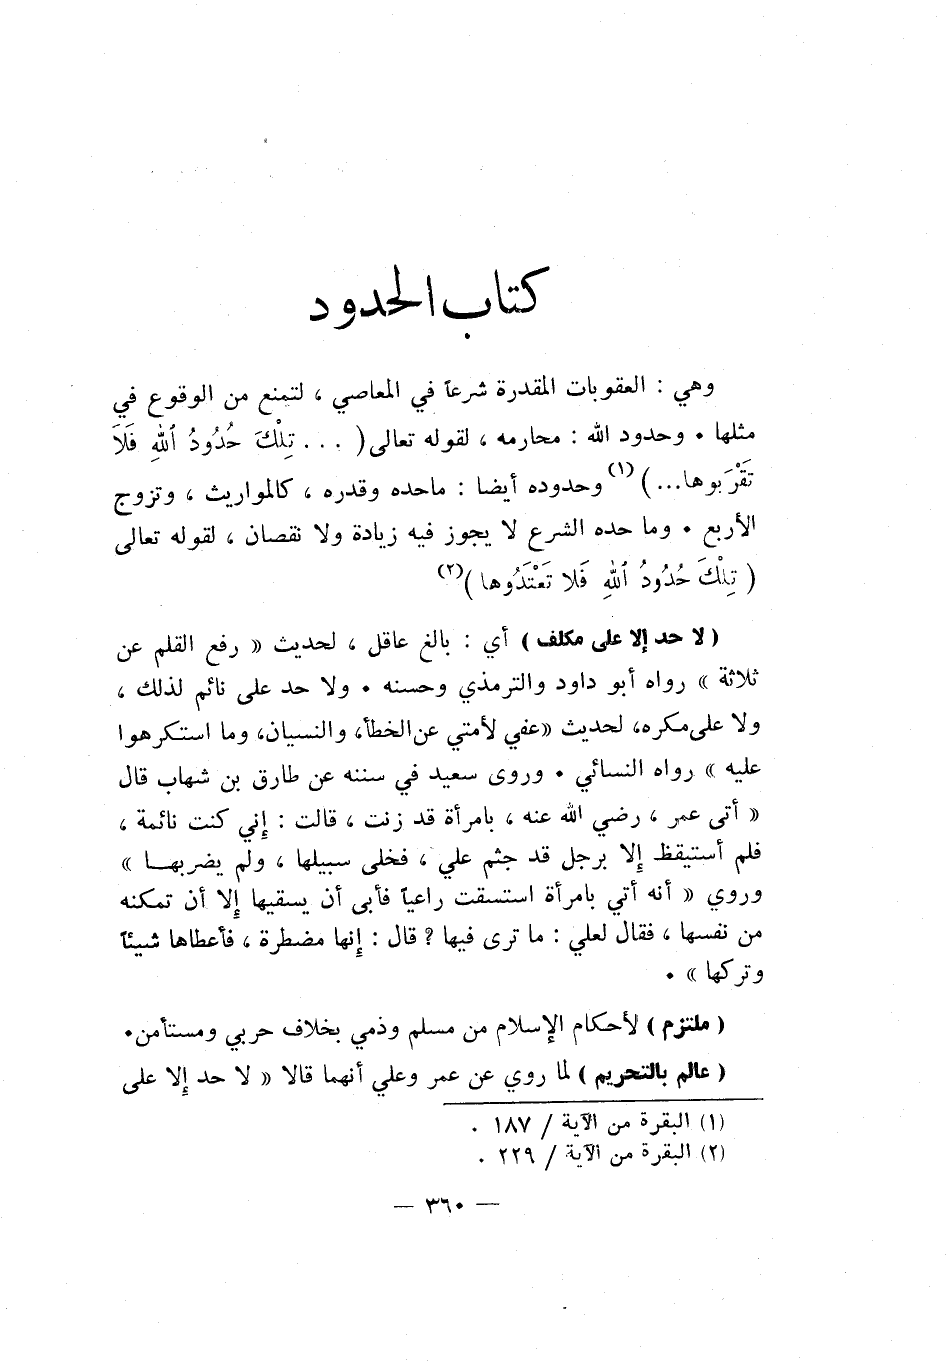 كتاب الحدود
وهي : العقوبات المقدرة شرعاً في المعاصي ، لتمنع من الوقوع في
مثلها • وحدود الله : محارمه ، لقوله تعالى ( . . . تِلْكَ حُدُودُ ٱللهِ فَلاَ
تَقْرَبوها...)(١) وحدوده أيضا : ماحده وقدره ، كالمواريث ، وتزوج
الأربع • وما حده الشرع لا يجوز فيه زيادة ولا نقصان ، لقوله تعالى
( تِلْكَ حُدُودُ ٱللهِ فَلا تَعْتَدُوها )(٢)
( لا حد إلا على مكلف ) أي : بالغ عاقل ، لحديث « رفع القلم عن
ثلاثة » رواه أبو داود والترمذي وحسنه • ولا حد على نائم لذلك ،
ولا على مكره، لحديث «عفي لأمتي عن الخطأ، والنسيان، وما استكرهوا
عليه » رواه النسائي • وروى سعيد في سننه عن طارق بن شهاب قال
« أتى عمر ، رضي الله عنه ، بامرأة قد زنت ، قالت : إني كنت نائمة ،
فلم أستيقظ إلا برجل قد جثم علي ، فخلى سبيلها ، ولم يضربها »
وروي « أنه أتي بامرأة استسقت راعياً فأبى أن يسقيها إلا أن تمكنه
من نفسها ، فقال لعلي : ما ترى فيها ? قال : إنها مضطرة ، فأعطاها شيئاً
وتركها » •
( ملتزم ) لأحكام الإسلام من مسلم وذمي بخلاف حربي ومستأمن•
( عالم بالتحريم ) لما روي عن عمر وعلي أنهما قالا « لا حد إلا على
(١) البقرة من الآية / ١٨٧ .
(٢) البقرة من الآية / ٢٢٩ .
— ٣٦٠ —